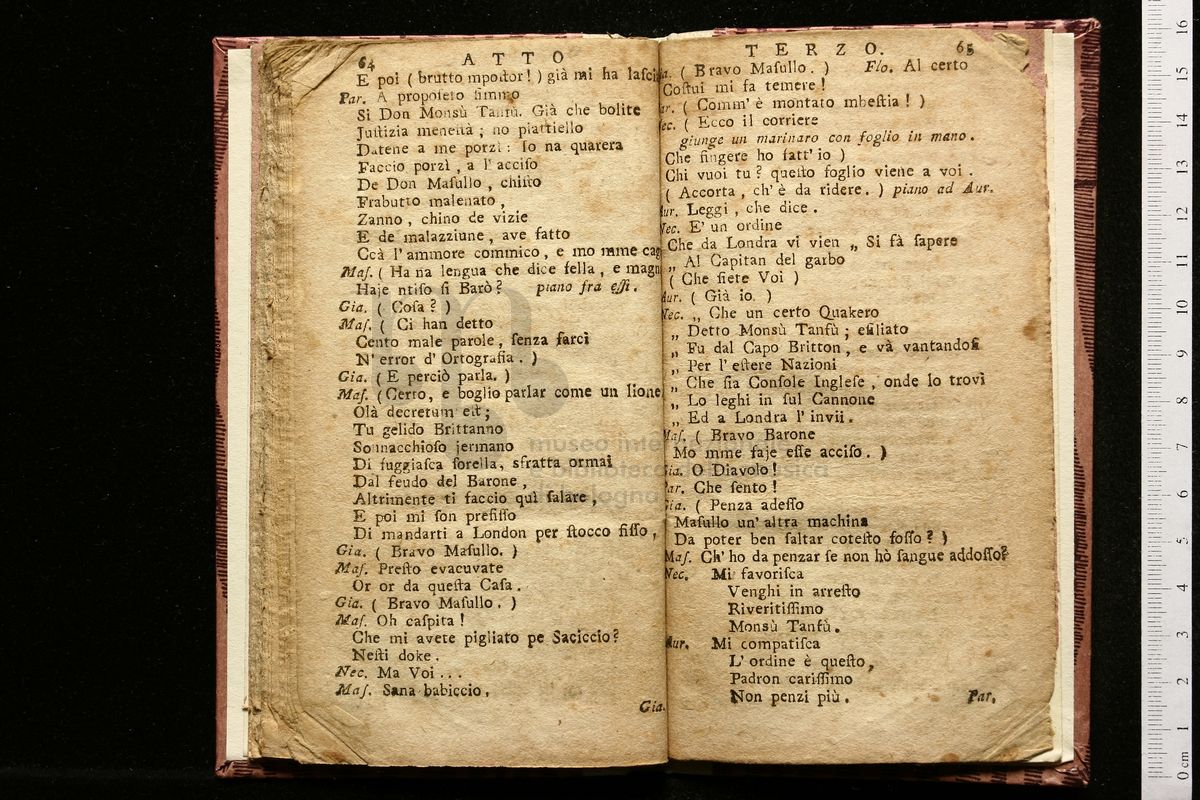 64 ATTO
E poi ( brutto mpostor! ) già mi ha lasci
Par. A proposeto simmo
Si Don Monsù Tanfù. Già che bolite
Justizia meneità ; no piattiello
Datene a me porzì : Io na quarera
Faccio porzì , a l' acciso
De Don Masullo , chisto
Frabutto malenato ,
Zanno , chino de vizie
E de malazziune , ave fatto
Ccà l' ammore commico , e mo mme cag
Mas. ( Ha na lengua che dice sella , e magn
Haje ntiso si Barò ? piano fra essi.
Gia. ( Cosa ? )
Mas. ( Ci han detto
Cento male parole , senza farci
N' error d' Ortografia . )
Gia. ( E perciò parla. )
Mas. ( Certo, e boglio parlar come un lione
Olà decretum est ;
Tu gelido Brittanno
Sonnacchioso jermano
Di fuggiasca sorella, sfratta ormai
Dal feudo del Barone ,
Altrimente ti faccio quì salare ,
E poi mi son prefisso
Di mandarti a London per stocco fisso ,
Gia. ( Bravo Masullo. )
Mas. Presto evacuvate
Or or da questa Casa .
Gia. ( Bravo Masullo . )
Mas. Oh caspita !
Che mi avete pigliato pe Saciccio?
Nesti doke .
Nec. Ma Voi ...
Mas. Sana babiccio ,
Gia.
TERZO. 65
ia. ( Bravo Masullo. ) Flo. Al certo
Costui mi fa temere !
ar. ( Comm' è montato mbestia ! )
Nec. ( Ecco il corriere
giunge un marinaro con foglio in mano .
Che fingere ho fatt' io )
Chi vuoi tu ? questo foglio viene a voi .
( Accorta , ch' è da ridere. ) piano ad Aur.
Aur. Leggi , che dice .
Nec. E' un ordine
Che da Londra vi vien „ Si fà sapere
„ Al Capitan del garbo
( Che siete Voi )
Aur. ( Già io. )
Nec. „ Che un certo Quakero
„ Detto Monsù Tanfù ; esiliato
„ Fu dal Capo Britton , e và vantandosi
„ Per l' estere Nazioni
„ Che sia Console Inglese , onde lo trovì
„ Lo leghi in sul Cannone
„ Ed a Londra l' invii .
Mas. ( Bravo Barone
Mo mme faje esse acciso. )
Gia. O Diavolo !
Par. Che sento !
Gia. ( Penza adesso
Masullo un' altra machina
Da poter ben saltar cotesto fosso ? )
Mas. Ch' ho da penzar se non hò sangue addosso?
Nec. Mi favorisca
Venghi in arresto
Riveritissimo
Monsù Tanfù.
Aur. Mi compatisca
L' ordine è questo,
Padron carissimo
Non penzi più .
Par.
museo internazionale
e biblioteca della musica
di bologna
0 cm 1 2 3 4 5 6 7 8 9 10 11 12 13 14 15 16